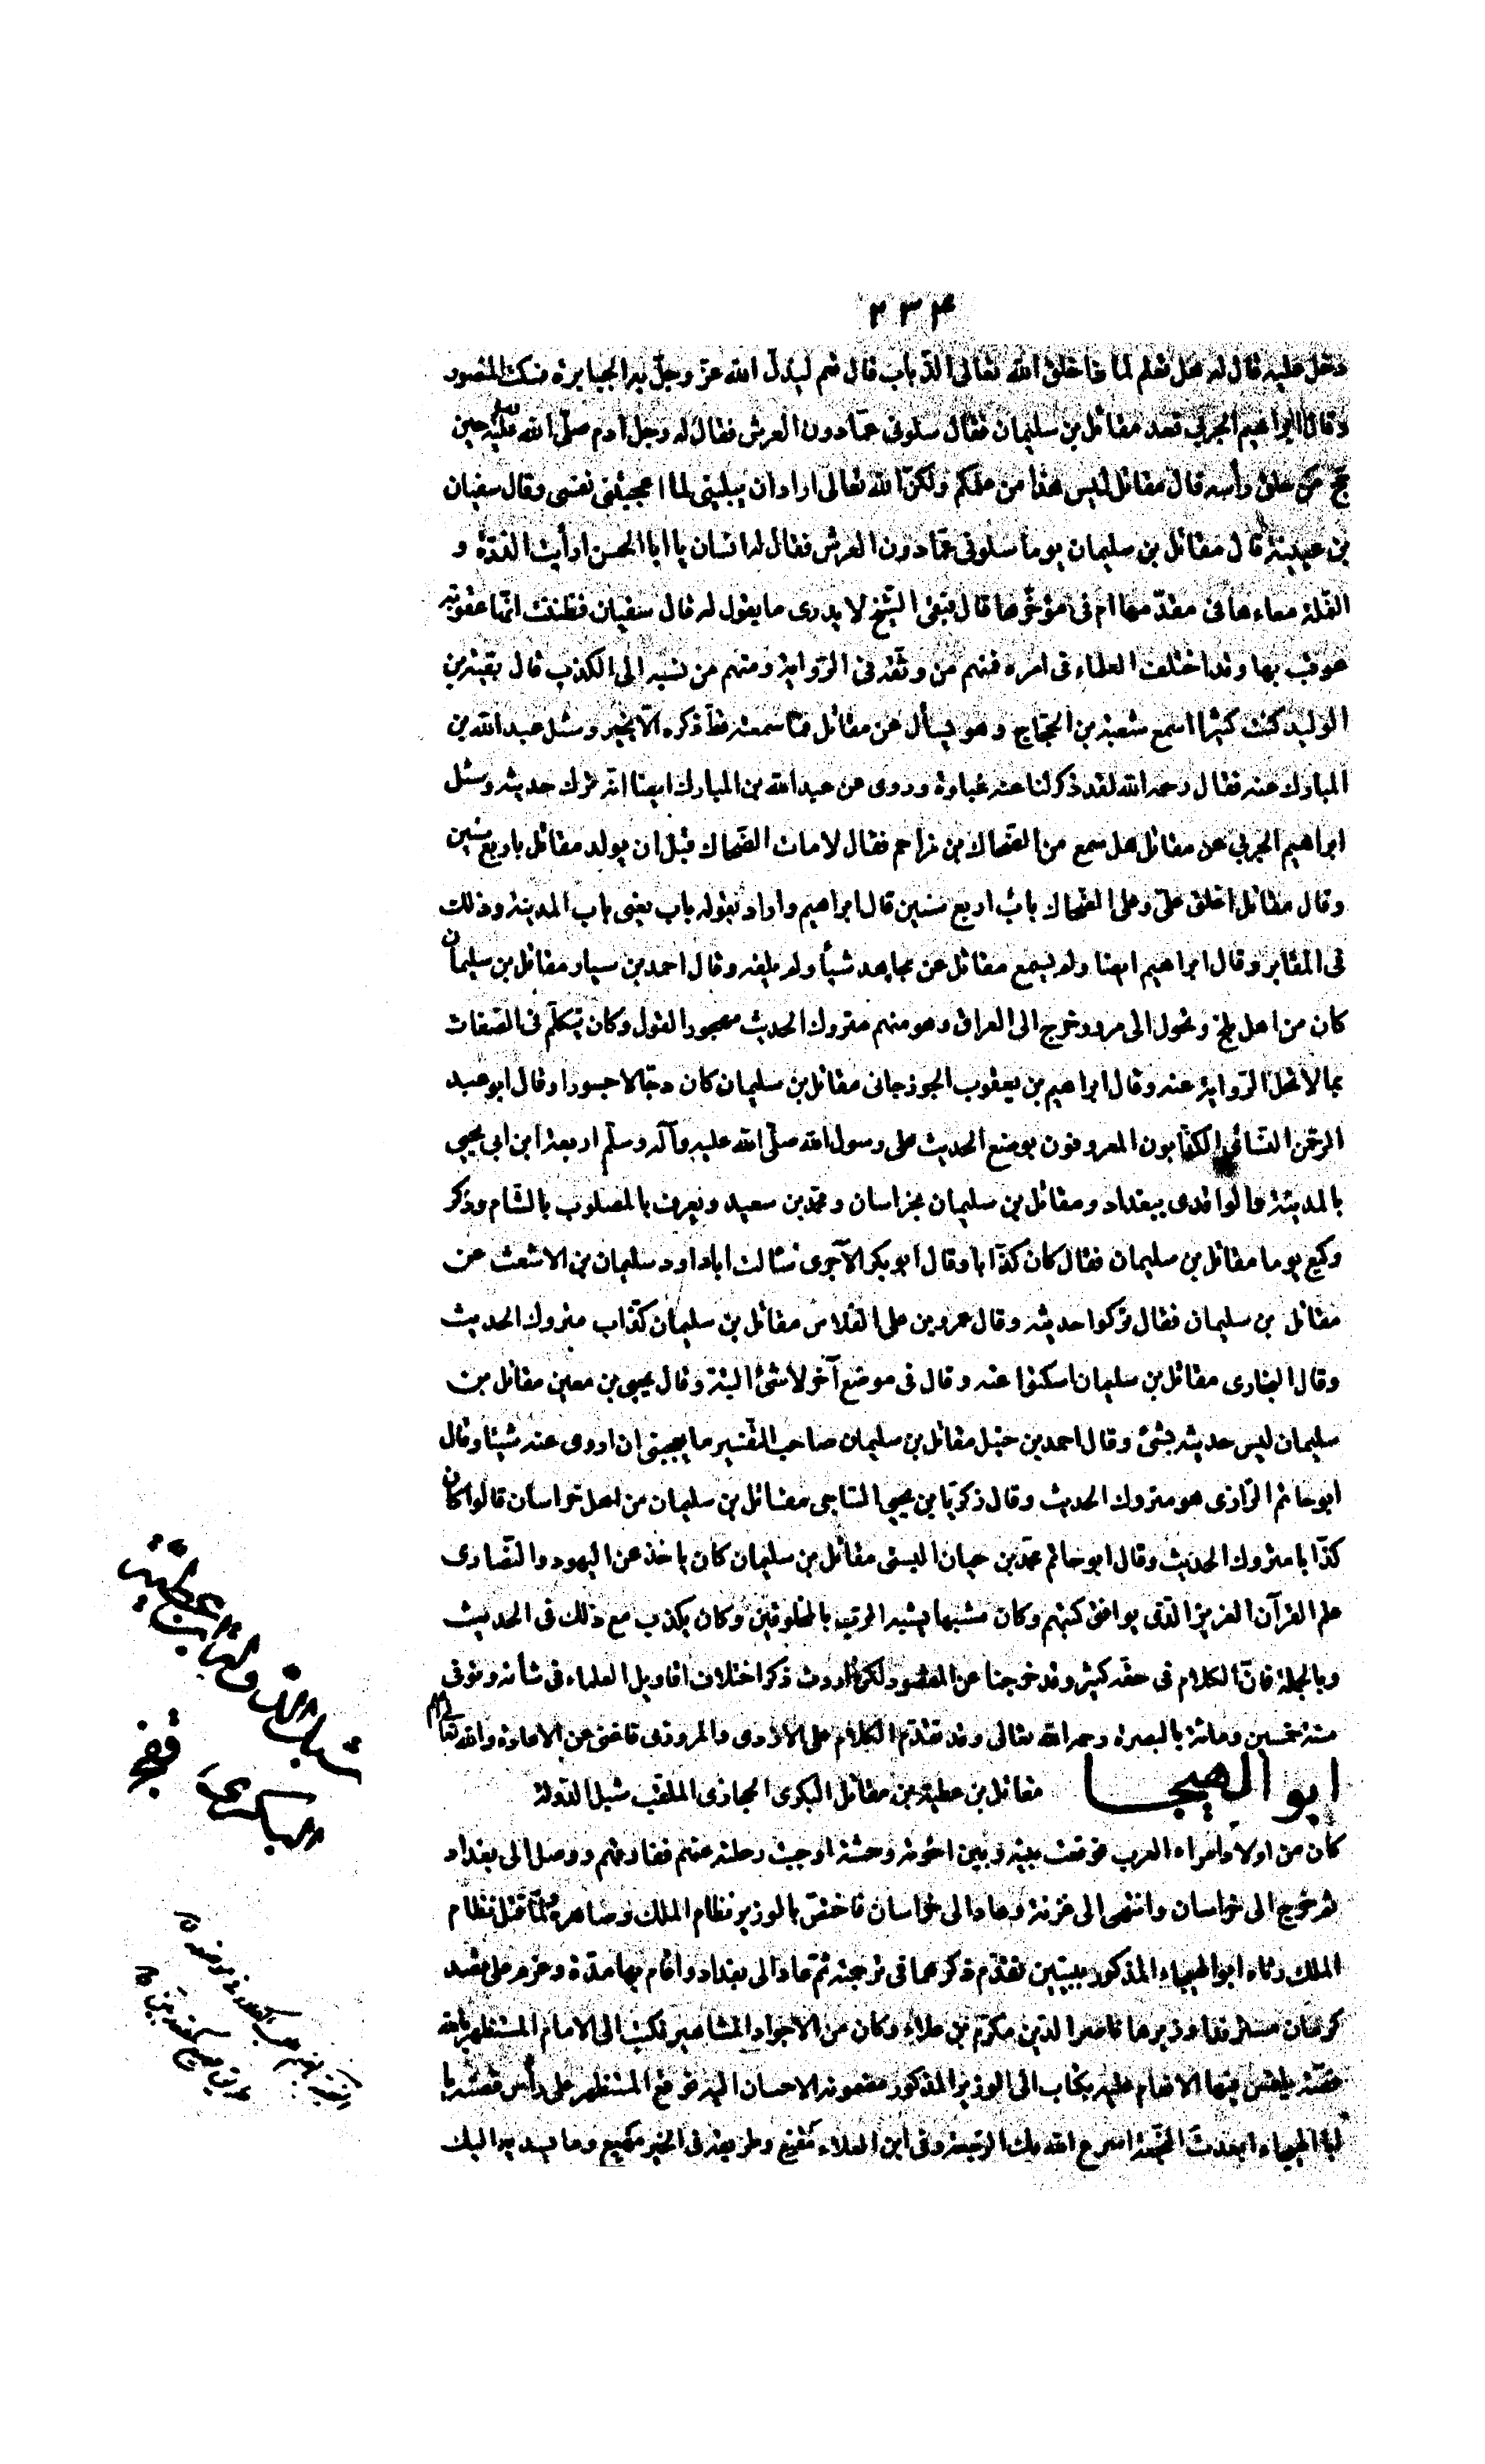 ٢٣٤
دخل عليه قال له هل تعلم لماذا خلق الله تعالى الذباب قال نعم ليذل الله عز وجل به الجبابرة فسكت المنصور
وقال ابراهيم الحربي قعد مقاتل بن سليمان فقال سلونى عمّا دون العرش فقال له رجل آدم صلّى الله عليه حين
حجّ من حلق رأسه قال مقاتل ليس هذا من علمكم ولكنّ الله تعالى اراد ان يبلينى لما اعجبتنى نفسى وقال سفيان
بن عيينة قال مقاتل بن سليمان يوما سلونى عمّا دون العرش فقال له انسان يا ابا الحسن ارأيت الذرّة و
النملة معاءها فى مقدّمها ام فى مؤخّرها قال فبقى الشّيخ لا يدرى ما يقول له قال سفيان فظننت انّها عقوبة
عوقب بها وقد اختلف العلماء فى امره فمنهم من وثّقه فى الرّواية ومنهم من نسبه الى الكذب قال بقية بن
الوليد كنت كثيرا اسمع شعبة بن الحجّاج وهو يسأل عن مقاتل فما سمعته قطّ ذكره الّا بخير وسئل عبد الله بن
المبارك عنه فقال رحمه الله لقد ذكر لنا عنه عبادة وروى عن عبد الله بن المبارك ايضا انّه ترك حديثه وسئل
ابراهيم الحربي عن مقاتل هل سمع من الضّحاك بن مزاحم فقال لا مات الضّحاك قبل ان يولد مقاتل باربع سنين
وقال مقاتل اغلق علىّ وعلى الضّحاك باب اربع سنين قال ابراهيم واراد بقوله باب يعنى باب المدينة وذلك
فى المقابر وقال ابراهيم ايضا ولم يسمع مقاتل عن مجاهد شيأ ولم يلقه وقال احمد بن سيار مقاتل بن سليمان
كان من اهل بلخ وتحول الى مرو وخرج الى العراق وهو متهم متروك الحديث مهجور القول وكان يتكلّم فى الصّفات
بما لا تحلّ الرّواية عنه وقال ابراهيم بن يعقوب الجوزجانى مقاتل بن سليمان كان دجّالا جسورا وقال ابو عبد
الرحمن النّسائى الكذّابون المعروفون بوضع الحديث على رسول الله صلّى الله عليه وآله وسلّم اربعة ابن ابى يحيى
بالمدينة والواقدى ببغداد ومقاتل بن سليمان بخراسان ومحمّد بن سعيد ويعرف بالمصلوب بالشّام وذكر
وكيع يوما مقاتل بن سليمان فقال كان كذّابا وقال ابو بكر الآجرى سئالت ابا داود سليمان بن الاشعث عن
مقاتل بن سليمان فقال تركوا حديثه وقال عمرو بن على الفلاس مقاتل بن سليمان كذّاب متروك الحديث
وقال البخارى مقاتل بن سليمان اسكتوا عنه وقال فى موضع آخر لا شئ البتة وقال يحيى بن معين مقاتل بن
سليمان ليس حديثه بشئ وقال احمد بن حنبل مقاتل بن سليمان صاحب التّفسير ما يعجبنى ان اروى عنه شيئا وقال
ابو حاتم الرّازى هو متروك الحديث وقال زكريّا بن يحيى السّاجى مقاتل بن سليمان من اهل خراسان قالوا كان
كذّابا متروك الحديث وقال ابو حاتم محمّد بن حبان البستى مقاتل بن سليمان كان ياخذ عن اليهود والنّصارى
علم القرآن العزيز الّذى يوافق كتبهم وكان مشبها يشبه الرب بالمخلوقين وكان يكذب مع ذلك فى الحديث
وبالجملة فانّ الكلام فى حقّه كثير وقد خرجنا عن المقصود لكن اردت ذكر اختلاف اقاويل العلماء فى شأنه وتوفى
سنة خمسين ومائة بالبصرة رحمه الله تعالى وقد تقدّم الكلام على الازدى والمروزى فاغنى عن الاعادة والله تعالى
ابو الهيجا مقاتل بن عطية بن مقاتل البكرى الحجازى الملقب شبل الدّولة
كان من اولاد امراء العرب فوقعت بينه وبين اخوته وحشة اوجبت رحلته عنهم ففارقهم ووصل الى بغداد
ثم خرج الى خراسان وانتهى الى غزنة وعاد الى خراسان فاختصّ بالوزير نظام الملك وصاهره ولمّا قتل نظام
الملك رثاه ابو الهيجاء المذكور ببيتين تقدّم ذكرهما فى ترجمته ثم عاد الى بغداد واقام بها مدّة وعزم على قصد
كرمان مسترفدا وزيرها ناصر الدّين مكرم بن علاء وكان من الاجواد المشاهير فكتب الى الامام المستظهر بالله
قصّة يلتمس فيها الانعام عليه بكتاب الى الوزير المذكور مضمونه الاحسان اليه فوقع المستظهر على رأس قصّته يا
ابا الهيجاء ابعدت النّجعة اسرع الله بك الرّجعة وفى ابن العلاء مقنع وطريقه فى الخير مهيع وما يسديه اليك